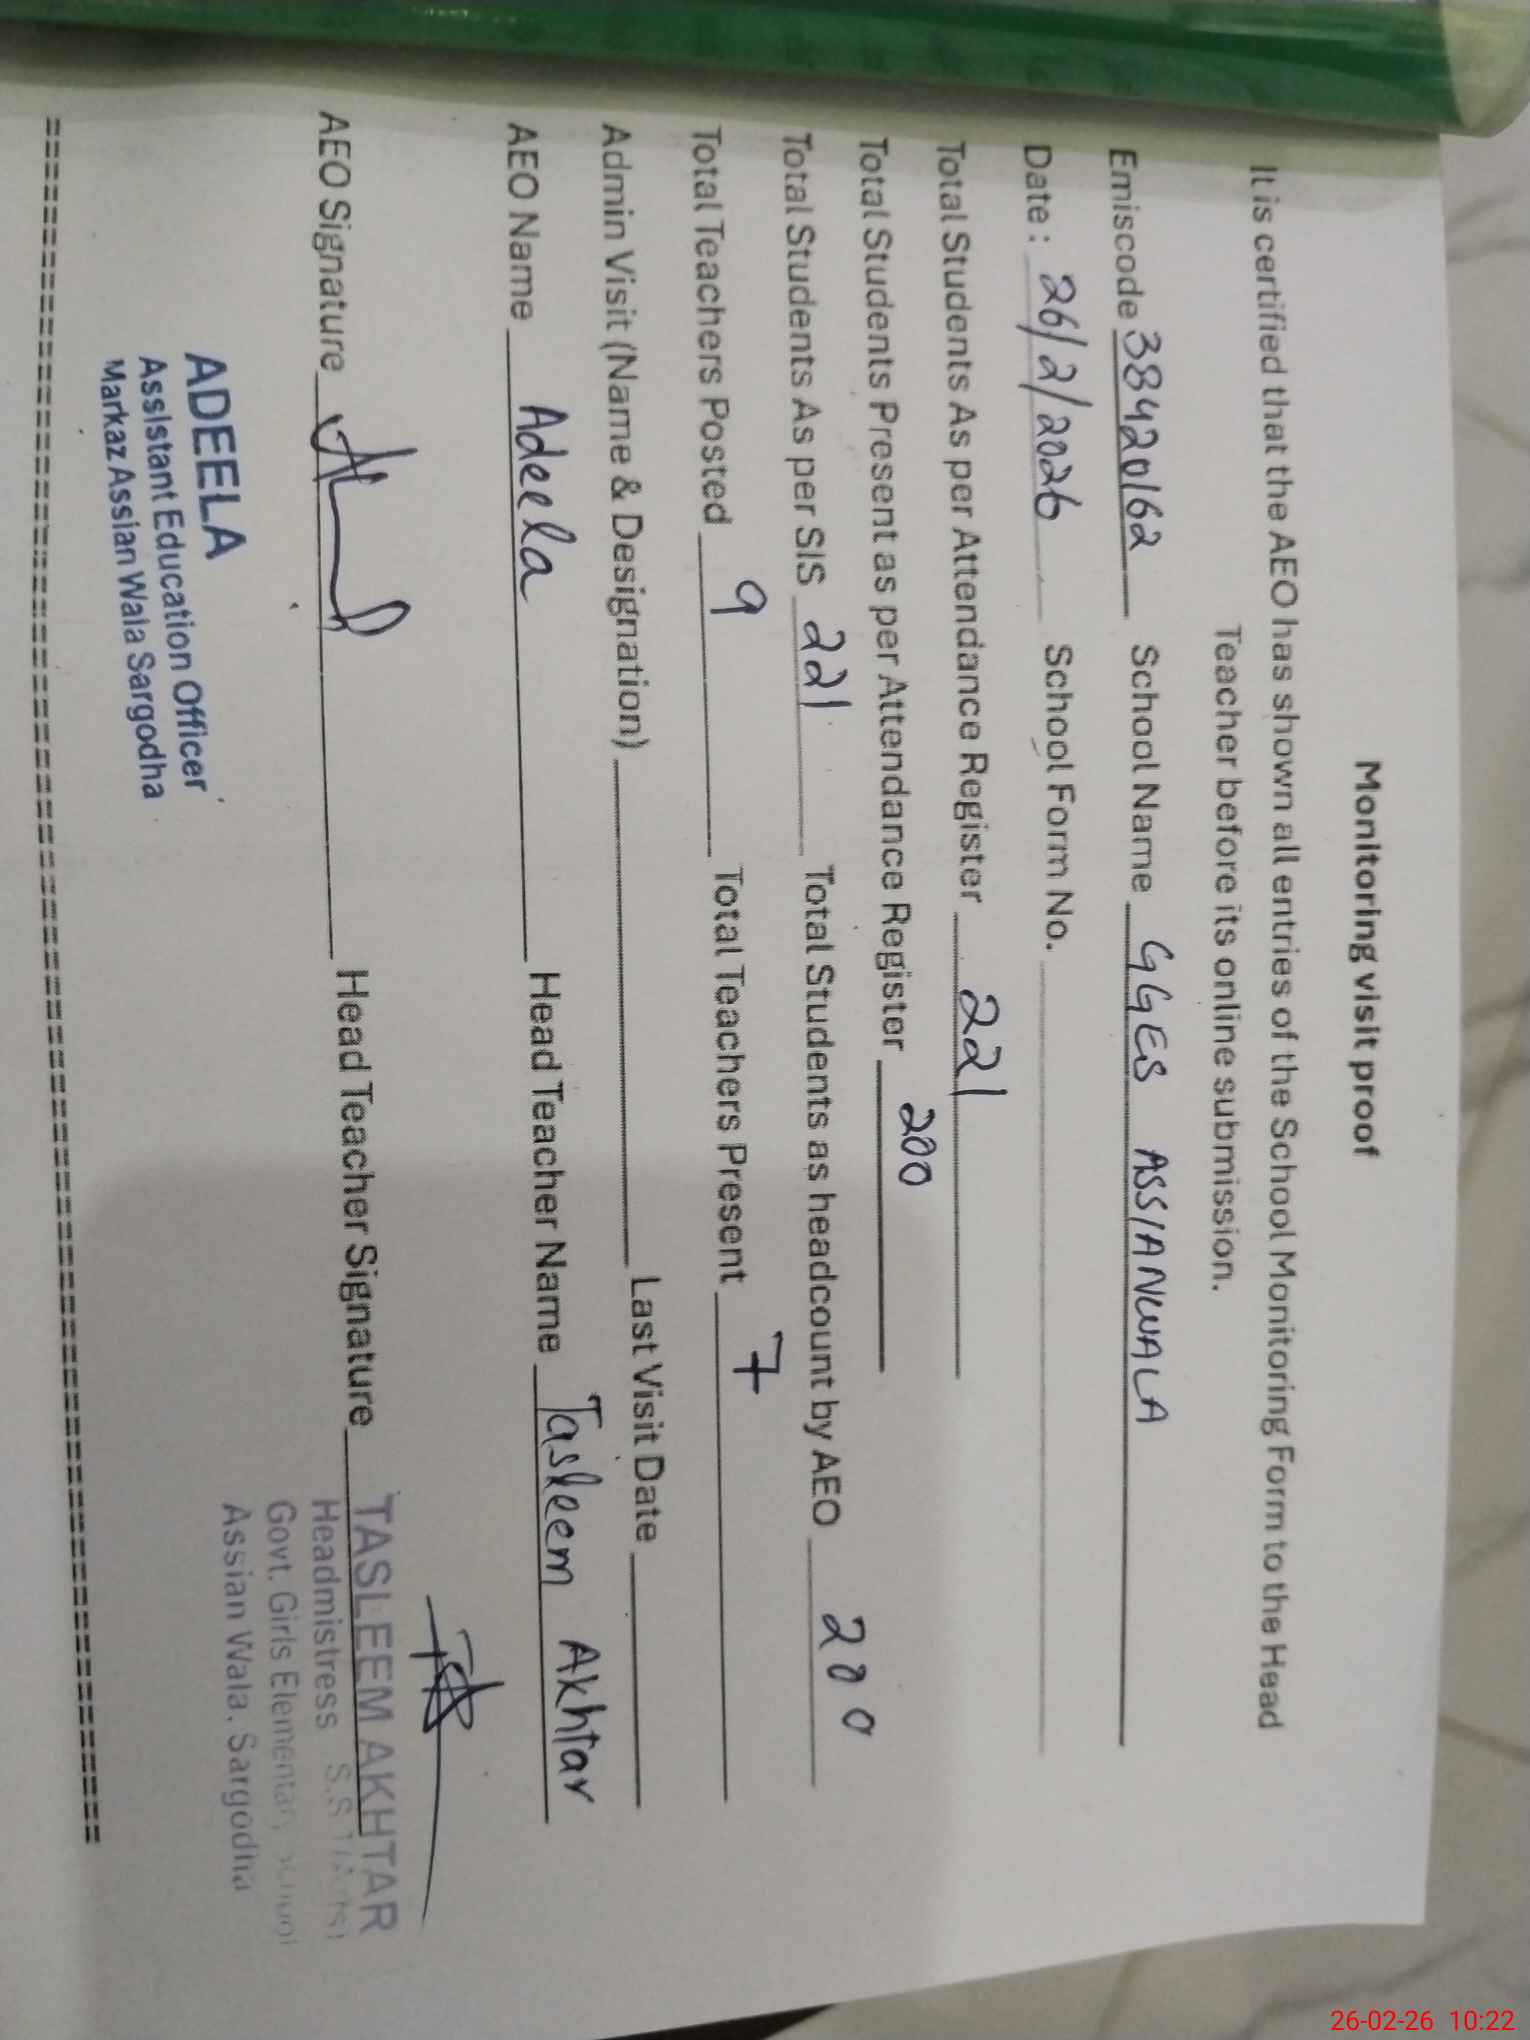 Monitoring visit proof
It is certified that the AEO has shown all entries of the School Monitoring Form to the Head
Teacher before its online submission.
Emiscode 38420162 School Name GGES ASSIANWALA
Date: 26/2/2026 School Form No.
Total Students As per Attendance Register 221
Total Students Present as per Attendance Register 200
Total Students As per SIS 221 Total Students as headcount by AEO 200
Total Teachers Posted 9 Total Teachers Present 7
Admin Visit (Name & Designation) Last Visit Date
AEO Name Adeela Head Teacher Name Tasleem Akhtar
AEO Signature Head Teacher Signature
TASLEEM AKHTAR
Headmistress
Govt. Girls Elementary School
Assian Wala, Sargodha
ADEELA
Assistant Education Officer
Markaz Assian Wala Sargodha
26-02-26 10:22